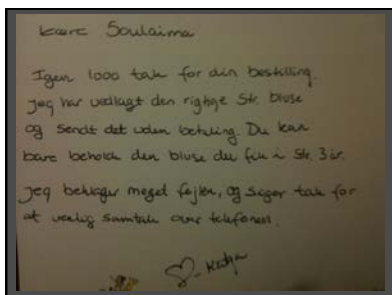 Kære Soulaima
Igen 1000 tak for din bestilling.
Jeg har vedlagt den rigtige Str. bluse
og sendt det uden betaling. Du kan
bare beholde den bluse du fik i Str. 3 år.
Jeg beklager meget fejlen, og siger tak for
at venlig samtale over telefonen.
- Katja